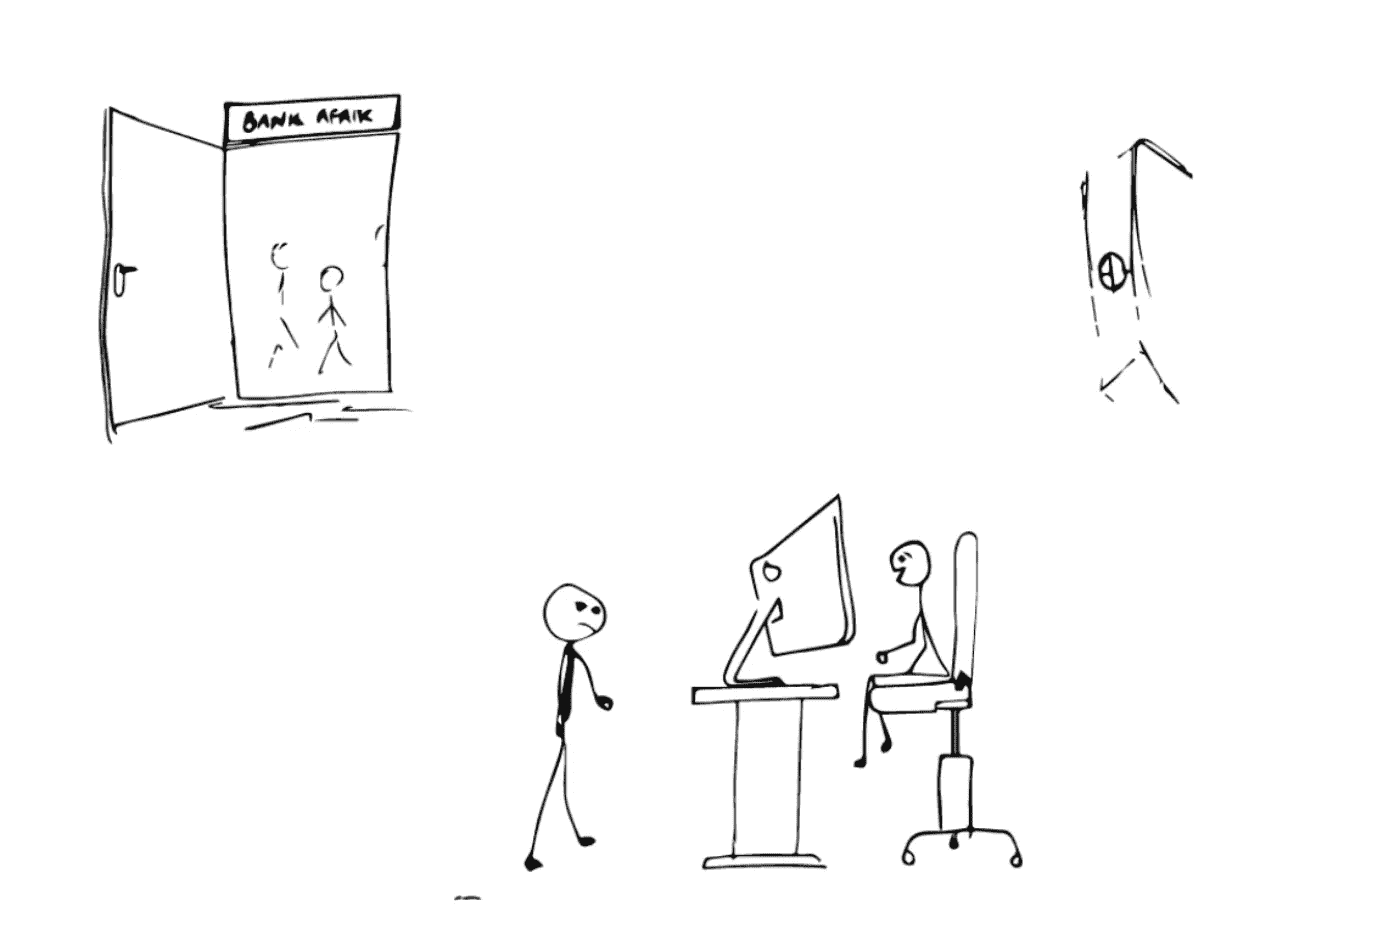 BANK AFRIK